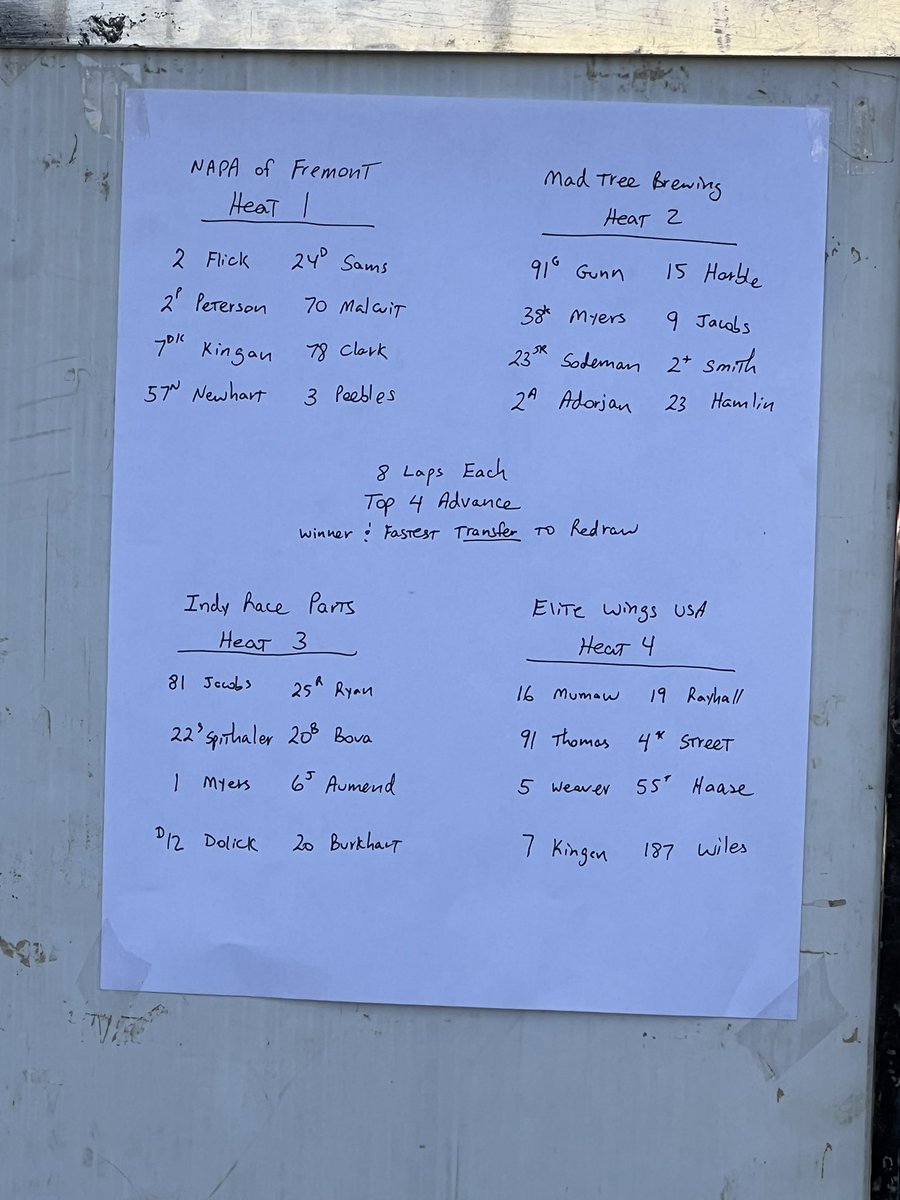 NAPA of Fremont
Heat 1
2 Flick 24D Sams
2P Peterson 70 Malcuit
7DK Kingan 78 Clark
57N Newhart 3 Peebles
Mad Tree Brewing
Heat 2
91G Gunn 15 Harble
38K Myers 9 Jacobs
23JR Sodeman 2+ Smith
2A Adorjan 23 Hamlin
8 Laps Each
Top 4 Advance
Winner & Fastest Transfer to Redraw
Indy Race Parts
Heat 3
81 Jacobs 25R Ryan
22S Spithaler 20B Bova
1 Myers 6J Aumend
D12 Dolick 20 Burkhart
Elite Wings USA
Heat 4
16 Mumaw 19 Rayhall
91 Thomas 4K Street
5 Weaver 55T Haase
7 Kingen 187 Wiles